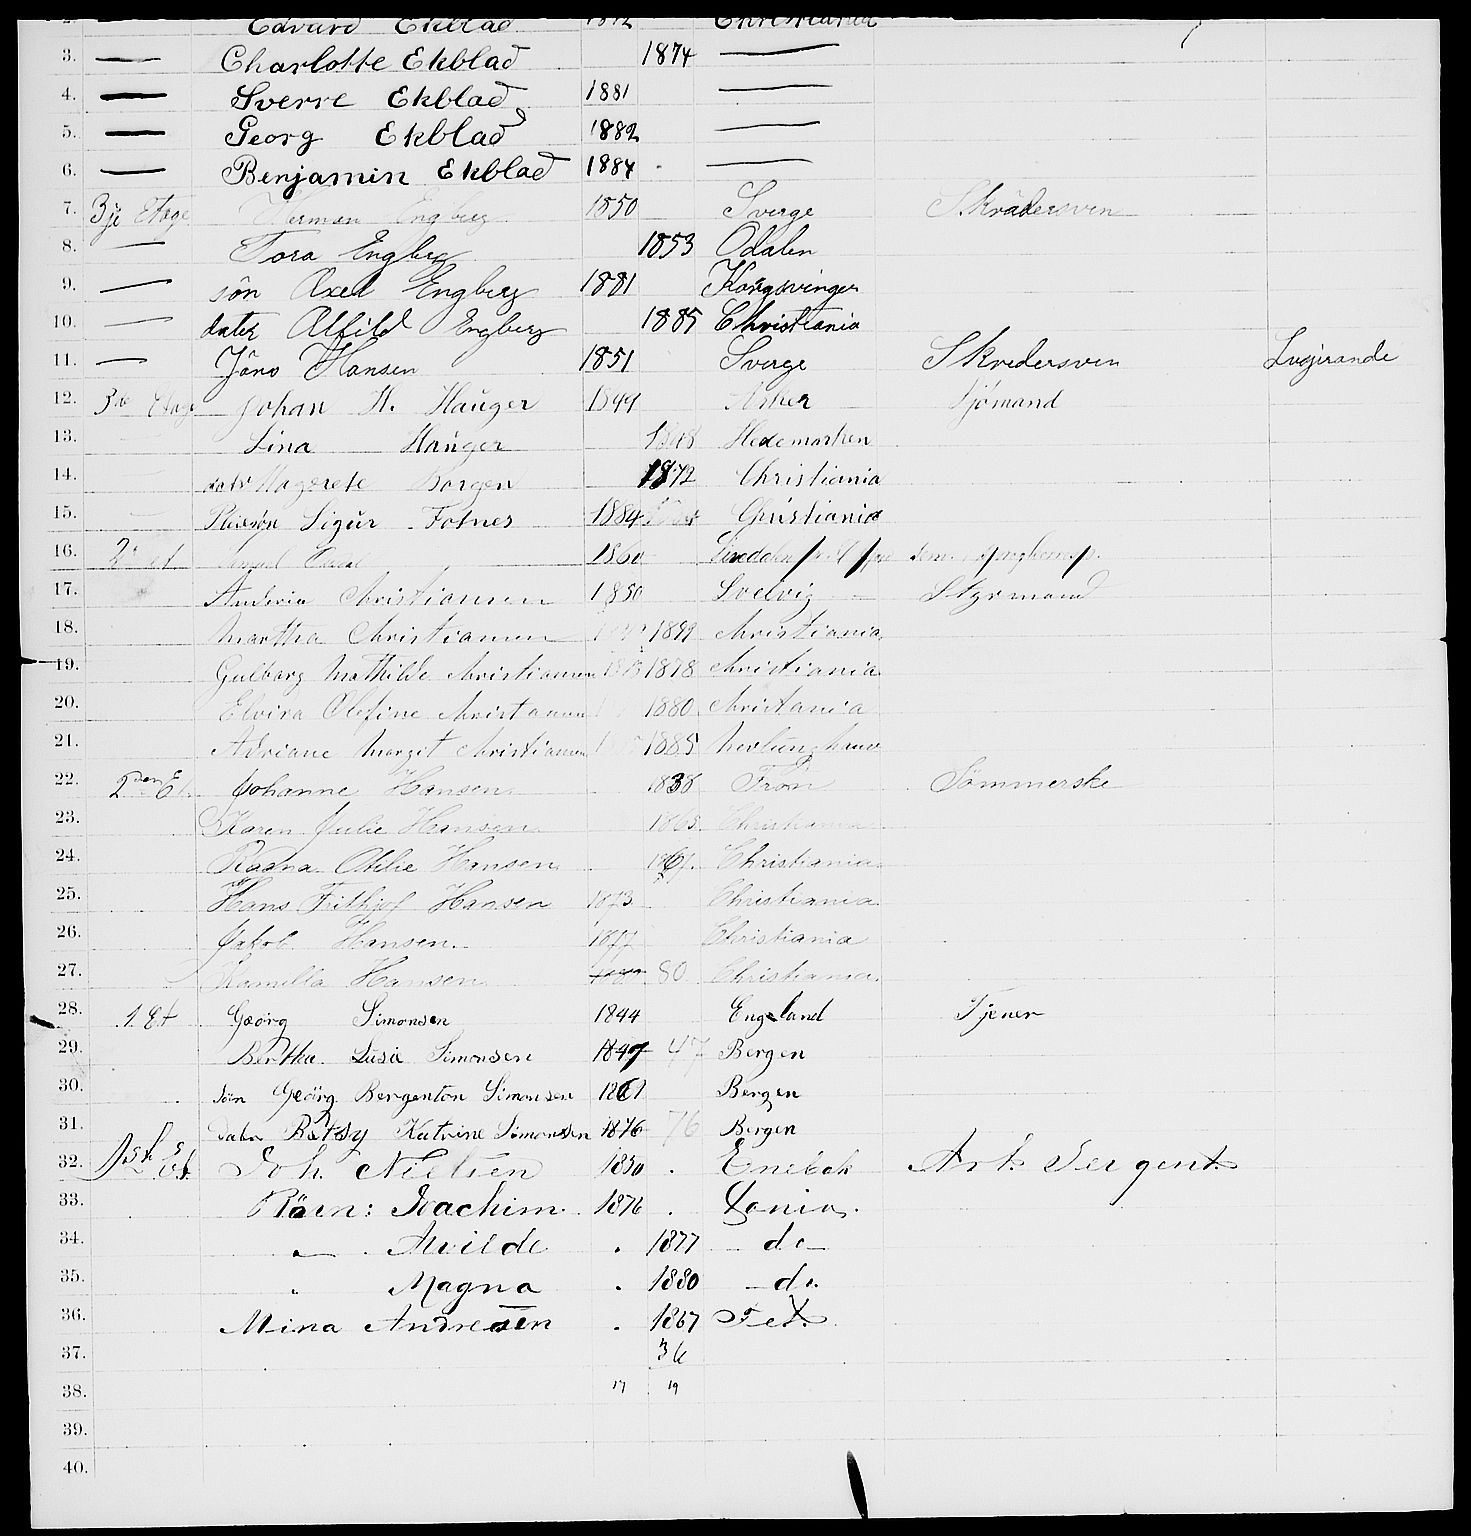 2. Edvard Ekblad 1872 Christiania
3. — Charlotte Ekblad 1874 —
4. — Sverre Ekblad 1881 —
5. — Georg Ekblad 1882 —
6. — Benjamin Ekblad 1884 —
7. 3je Etage Herman Engberg 1850 Sverge Skrädersven
8. — Tora Engberg 1853 Odalen
9. — sön Axel Engberg 1881 Kongsvinger
10. — dater Alfild Engberg 1885 Christiania
11. — Jöns Hansen 1851 Sverge Skredersven Logjirande
12. 3de Etage Johan H. Hauger 1849 Asker Sjömand
13. Lina Hauger 1848 Hedemarken
14. datr Magrete Borgen 1872 Christiania
15. Pleiesøn Sigur Fotnes 1884 Christiania
16. 2 et 1860
17. Christiansen 1850 Svelvig Styrmand
18. Martha Christiansen Christiania
19. Gulborg Mathilde Christiansen 1878 Christiania
20. Elvira Olefine Christiansen 1880 Christiania
21. Adriane Margit Christiansen 1885
22. 2den Et. Johanne Hansen 1838 Fron Sömmerske
23. Karen Julie Hansen 1865 Christiania
24. Ragna Otilie Hansen Christiania
25. Hans Frithjof Hansen 1873 Christiania
26. Jakob Hansen 1877 Christiania
27. Kamilla Hansen 80 Christiania
28. 1 Et Georg Simonsen 1844 England Tjener
29. Bertha Lusie Simonsen 1847 47 Bergen
30. sön Georg Bergenton Simonsen Bergen
31. dater Betsy Katrine Simonsen 1876 76 Bergen
32. 1ste Et. Joh. Nielsen 1850 Enebak Art. Sergent
33. Børn: Joachim 1876 Xania.
34. " Alvilde 1877 do
35. " Magna 1880 do.
36. Mina Andresen 1867 Fet.
37. 36
38. 17 19
39.
40.